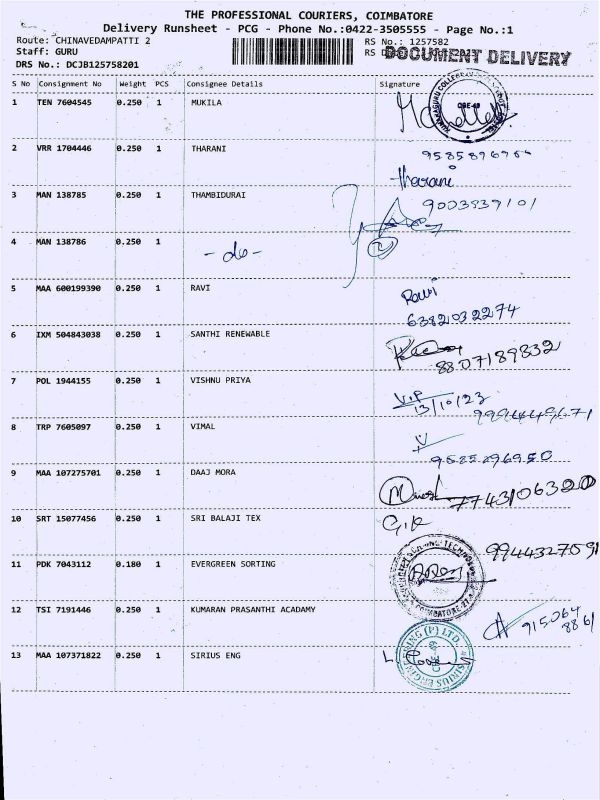 THE PROFESSIONAL COURIERS, COIMBATORE
Delivery Runsheet - PCG - Phone No.:0422-3505555 - Page No.:1
Route: CHINAVEDAMPATTI 2 RS No.: 1257582
Staff: GURU RS DOCUMENT DELIVERY
DRS No.: DCJB125758201
S No Consignment No Weight PCS Consignee Details Signature
1 TEN 7604545 0.250 1 MUKILA
2 VRR 1704446 0.250 1 THARANI
Tharani
3 MAN 138785 0.250 1 THAMBIDURAI 9003839101
4 MAN 138786 0.250 1 - do - 2
5 MAA 600199390 0.250 1 RAVI Ravi
6382032274
6 IXM 504843038 0.250 1 SANTHI RENEWABLE
8807189832
7 POL 1944155 0.250 1 VISHNU PRIYA V.P
13/10/23 9994449671
8 TRP 7605097 0.250 1 VIMAL
9585296950
9 MAA 107275701 0.250 1 DAAJ MORA 7743106320
10 SRT 15077456 0.250 1 SRI BALAJI TEX
9944327591
11 PDK 7043112 0.180 1 EVERGREEN SORTING
12 TSI 7191446 0.250 1 KUMARAN PRASANTHI ACADAMY 915064
8861
13 MAA 107371822 0.250 1 SIRIUS ENG
SIRIUS ENGINEERING (P) LTD.